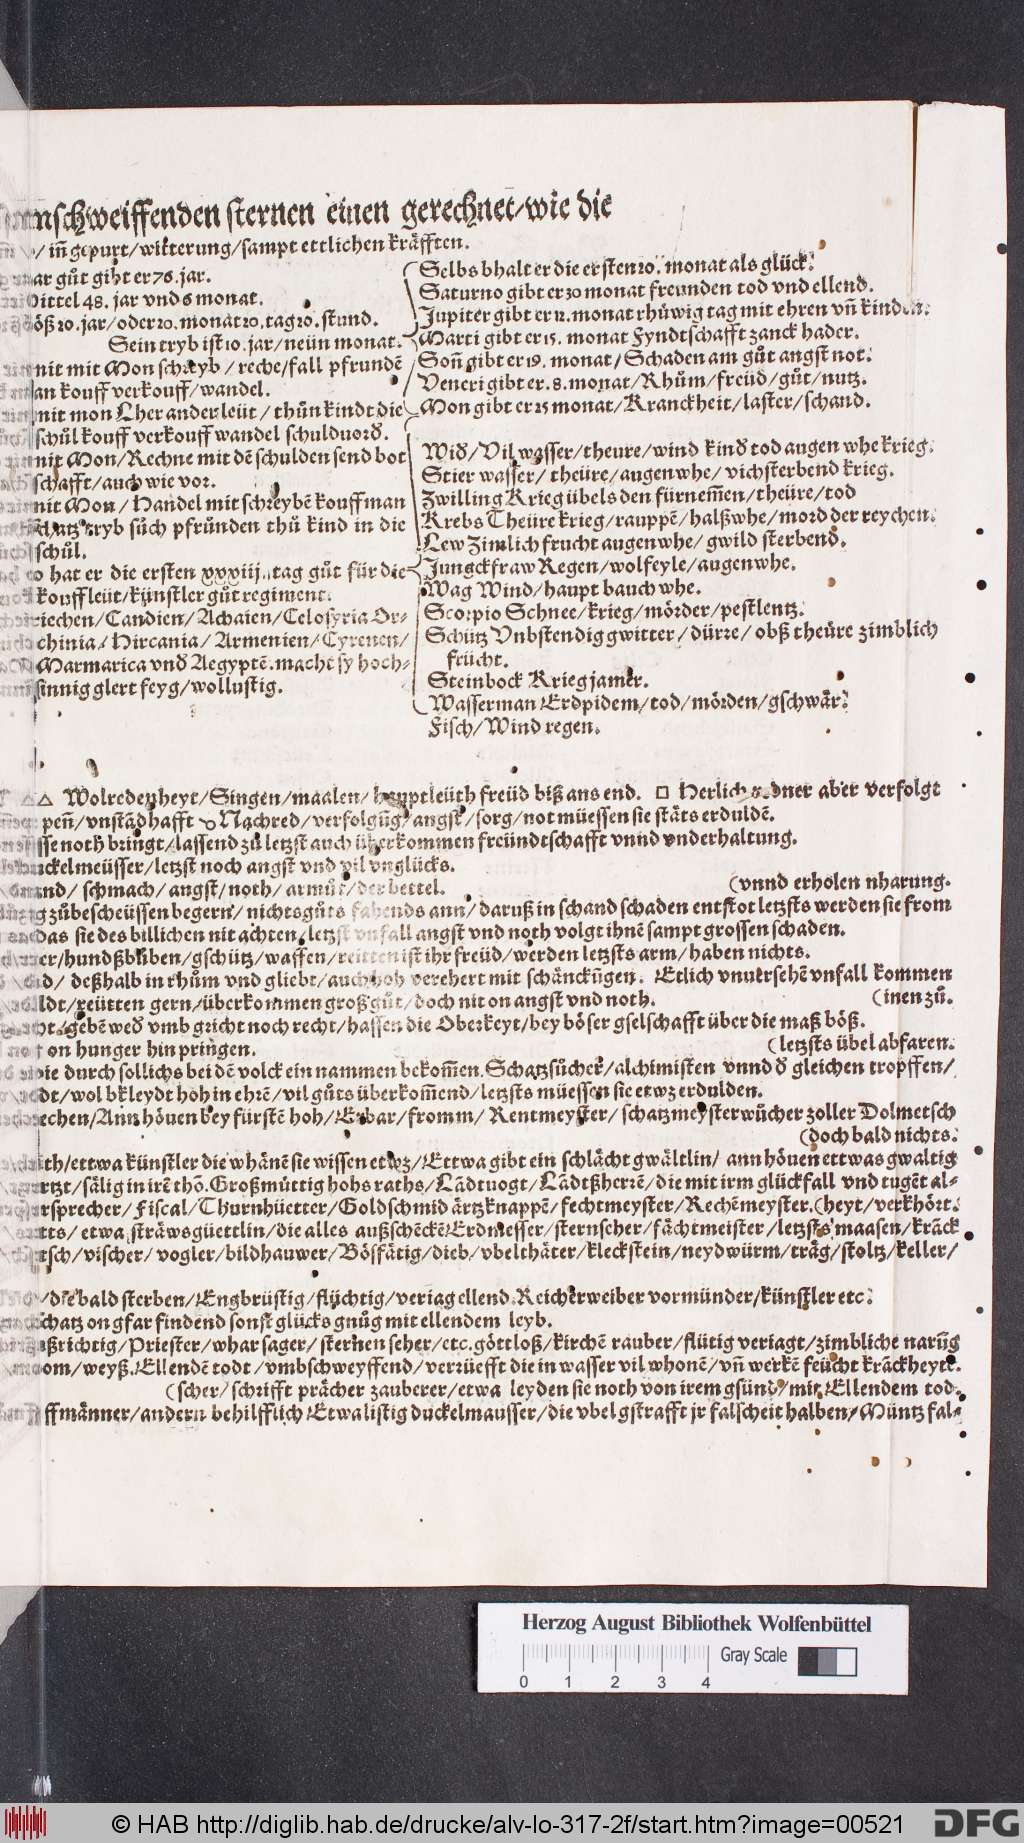 schweiffenden sternen einen gerechnet/wie die
iñ gepurt/witterung/sampt ettlichen kräfften.
gůt gibt er 76. jar.
48. jar vnd 6 monat.
böß 20. jar/oder 20. monat 20. tag 20. stund.
Sein tryb ist 10. jar/neün monat.
mit Mon schreyb/reche/fall pfrundē
kouff verkouff/wandel.
mit mon Lher ander leüt/thůn kindt die
schůl kouff verkouff wandel schuldvorđ.
mit Mon/Rechne mit dē schulden send bot
schafft/auch wie vor.
mit Mon/Handel mit schreybē kouffman
schatz tryb sůch pfrůnden thů kind in die
schůl.
hat er die ersten xxxiij. tag gůt für die
kouffleüt/künstler gůt regiment.
riechen/Candien/Achaien/Celosyria Or-
chinia/Hircania/Armenien/Cyrenen/
Marmarica vnđ Aegyptē. macht sy hoch-
sinnig glert feyg/wollustig.
Selbs bhalt er die ersten 20. monat als glück.
Saturno gibt er 30 monat freunden tod vnd ellend.
Jupiter gibt er 12. monat rhůwig tag mit ehren vñ kinden.
Marti gibt er 15. monat Fyndtschafft zanck hader.
Soñ gibt er 19. monat/Schaden am gůt angst not.
Veneri gibt er. 8. monat/Rhům/freüd/gůt/nutz.
Mon gibt er 25 monat/Kranckheit/laster/schand.
Widđ/Vil wasser/theure/wind kinđ tod augen whe krieg.
Stier wasser/theüre/augenwhe/vichsterbend krieg.
Zwilling Krieg übels den fürnem̃en/theüre/tod
Krebs Theüre krieg/rauppē/halßwhe/mord der reychen.
Lew Zimlich frucht augenwhe/gwild sterbend.
Jungckfraw Regen/wolfeyle/augenwhe.
Wag Wind/haupt bauch whe.
Scorpio Schnee/krieg/mörder/pestlentz.
Schütz Vnbstendig gwitter/dürre/obß theüre zimblich
frücht.
Steinbock Krieg jamer.
Wasserman Erdpidem/tod/mörden/gschwär.
Fisch/Wind regen.
△ Wolredenheyt/Singen/maalen/hauptleüth freüd biß ans end. □ Herlich redner aber verfolgt
peñ/vnstādhafft ☍ Nachred/verfolgũg/angst/sorg/not müessen sie stäts erduldē.
noth bringt/lassend zů letzst auch überkommen freündtschafft vnnd vnderhaltung.
duckelmeüsser/letzst noch angst vnd vil vnglücks.
schmach/angst/noth/armůt/der bettel. (vnnd erholen nharung.
zůbescheüssen begern/nichtsgůts fahends ann/daruß in schand schaden entstot letzsts werden sie from
das sie des billichen nit achten/letzst vnfall angst vnd noth volgt ihnē sampt grossen schaden.
hundßbůben/gschütz/waffen/reitten ist ihr freüd/werden letzsts arm/haben nichts.
deßhalb in rhům vnd gliebt/auch hoh verehert mit schänckũgen. Etlich vnuersehē vnfall kommen
reütten gern/überkommen groß gůt/doch nit on angst vnd noth. (inen zů.
gebē weđ vmb gricht noch recht/hassen die Oberkeyt/bey böser gselschafft über die maß böß.
on hunger hin pringen. (letzsts übel abfaren.
die durch sollichs bei dē volck ein nammen bekom̃en. Schatzsůcher/alchimisten vnnd đ gleichen tropffen/
wol bkleydt hoh in ehrē/vil gůts überkom̃end/letzsts müessen sie etwz erdulden.
Ann höuen bey fürstē hoh/Erbar/fromm/Rentmeyster/schatzmeyster wůcher zoller Dolmetsch
(doch bald nichts.
ettwa künstler die whänē sie wissen etwz/Ettwa gibt ein schlächt gwältlin/ann höuen ettwas gwaltig
sälig in irē thō. Großmůttig hohs raths/Lādtuogt/Lādtßherrē/die mit irm glückfall vnd tugēt al-
fersprecher/Fiscal/Thurnhüetter/Goldschmid ärtzknappē/fechtmeyster/Rechēmeyster. (heyt/verkhört.
etwa sträwsgüettlin/die alles außschēckē Erdmesser/sternscher/fächtmeister/letzsts maasen/krāck
vischer/vogler/bildhauwer/Bößfätig/dieb/vbelthäter/kleckstein/neydwürm/träg/stoltz/keller/
die bald sterben/Engbrüstig/flüchtig/veriag ellend. Reicher weiber vormünder/künstler etc.
schatz on gfar findend sonst glücks gnũg mit ellendem leyb.
Priester/wharsager/sternen seher/etc. göttloß/kirchē rauber/flütig veriagt/zimbliche narũg
weyß. Ellendē todt/vmbschweyffend/verzüefft die in wasser vil whonē/vñ werkē feücht krāckheytē.
(scher/schrifft prächer zauberer/etwa leyden sie noth von irem gsünd/mit Ellendem tod.
kouffmänner/andern behilfflich Etwa listig duckelmausser/die vbel gstrafft jr falscheit halben/Müntz fal-
Herzog August Bibliothek Wolfenbüttel
Gray Scale
0 1 2 3 4
© HAB http://diglib.hab.de/drucke/alv-lo-317-2f/start.htm?image=00521
DFG